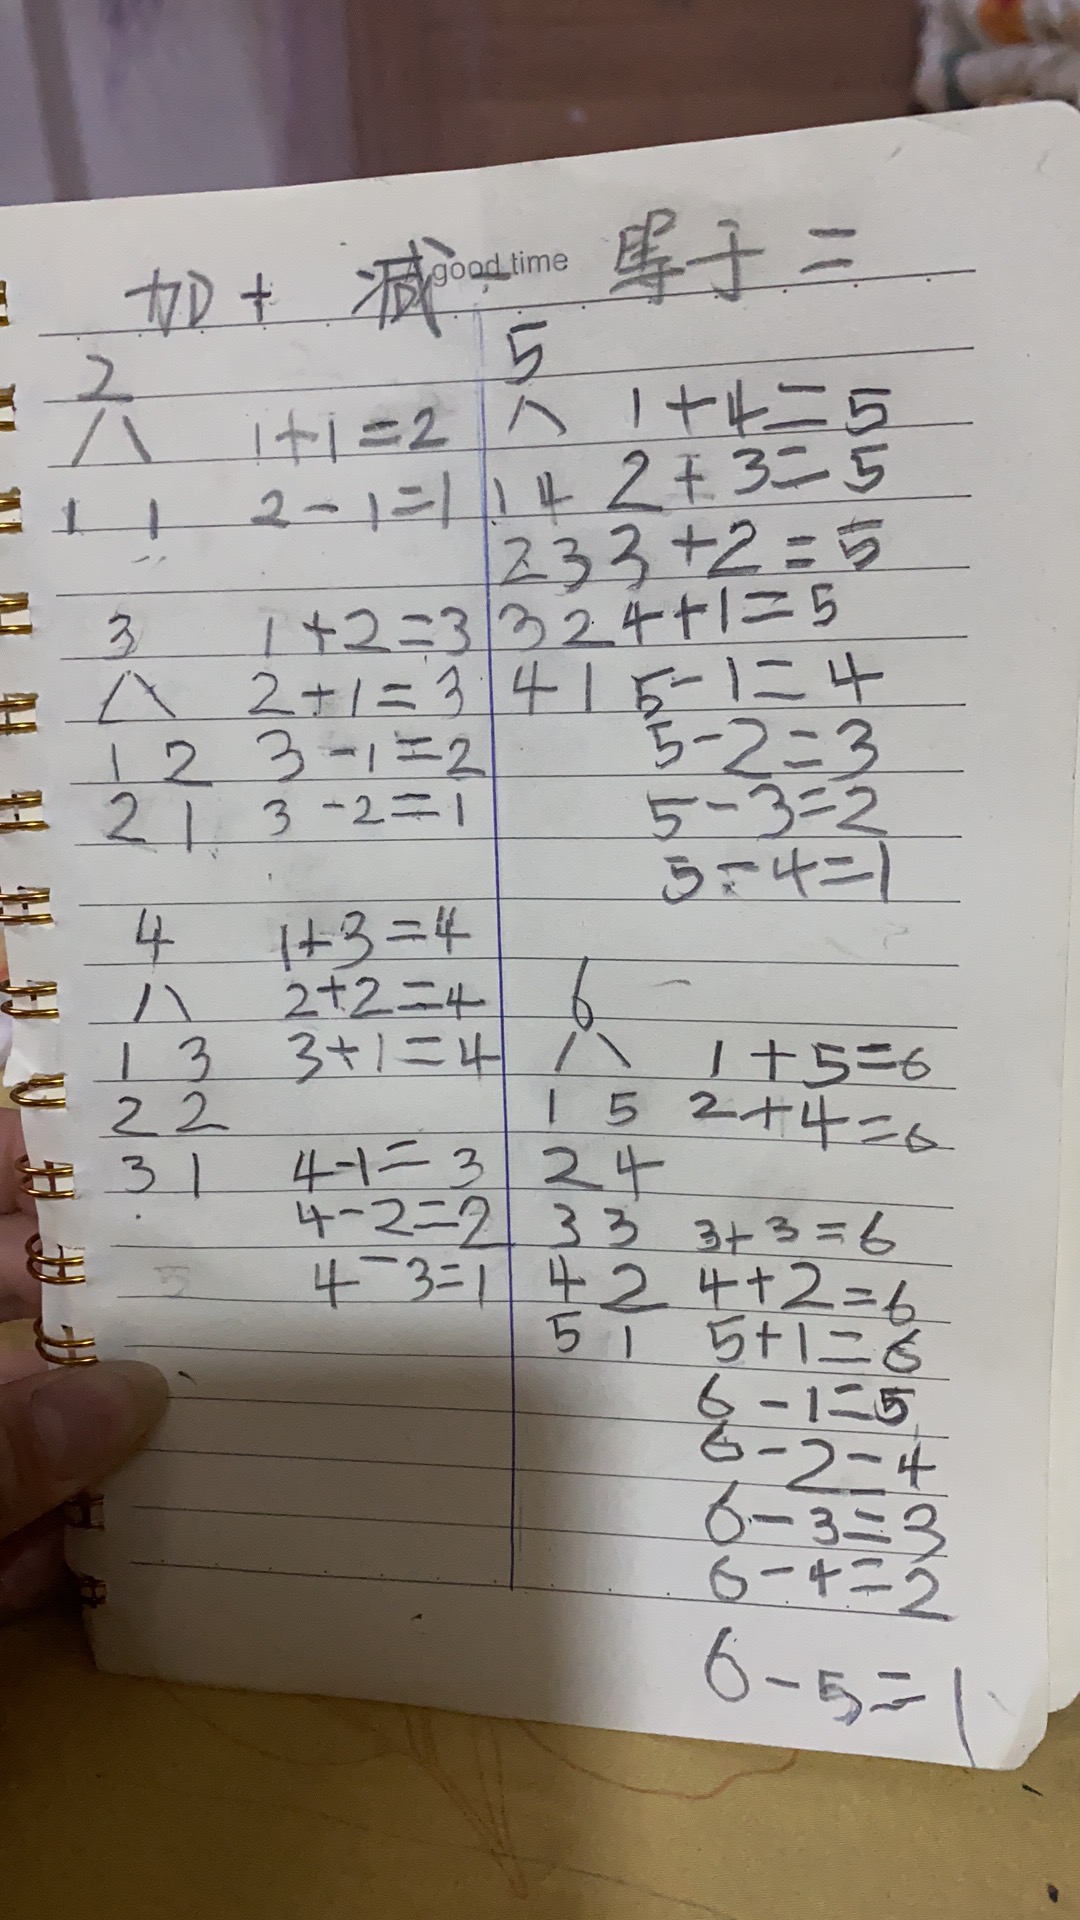 加+ 减- 等于=
good time
2
八
1+1=2
1 1
2-1=1
3
1+2=3
八
2+1=3
1 2
3-1=2
2 1
3-2=1
4
1+3=4
八
2+2=4
1 3
3+1=4
2 2
3 1
4-1=3
4-2=2
4-3=1
5
八
1+4=5
1 4
2+3=5
2 3
3+2=5
3 2
4+1=5
4 1
5-1=4
5-2=3
5-3=2
5-4=1
6
八
1+5=6
1 5
2+4=6
2 4
3 3
3+3=6
4 2
4+2=6
5 1
5+1=6
6-1=5
6-2=4
6-3=3
6-4=2
6-5=1